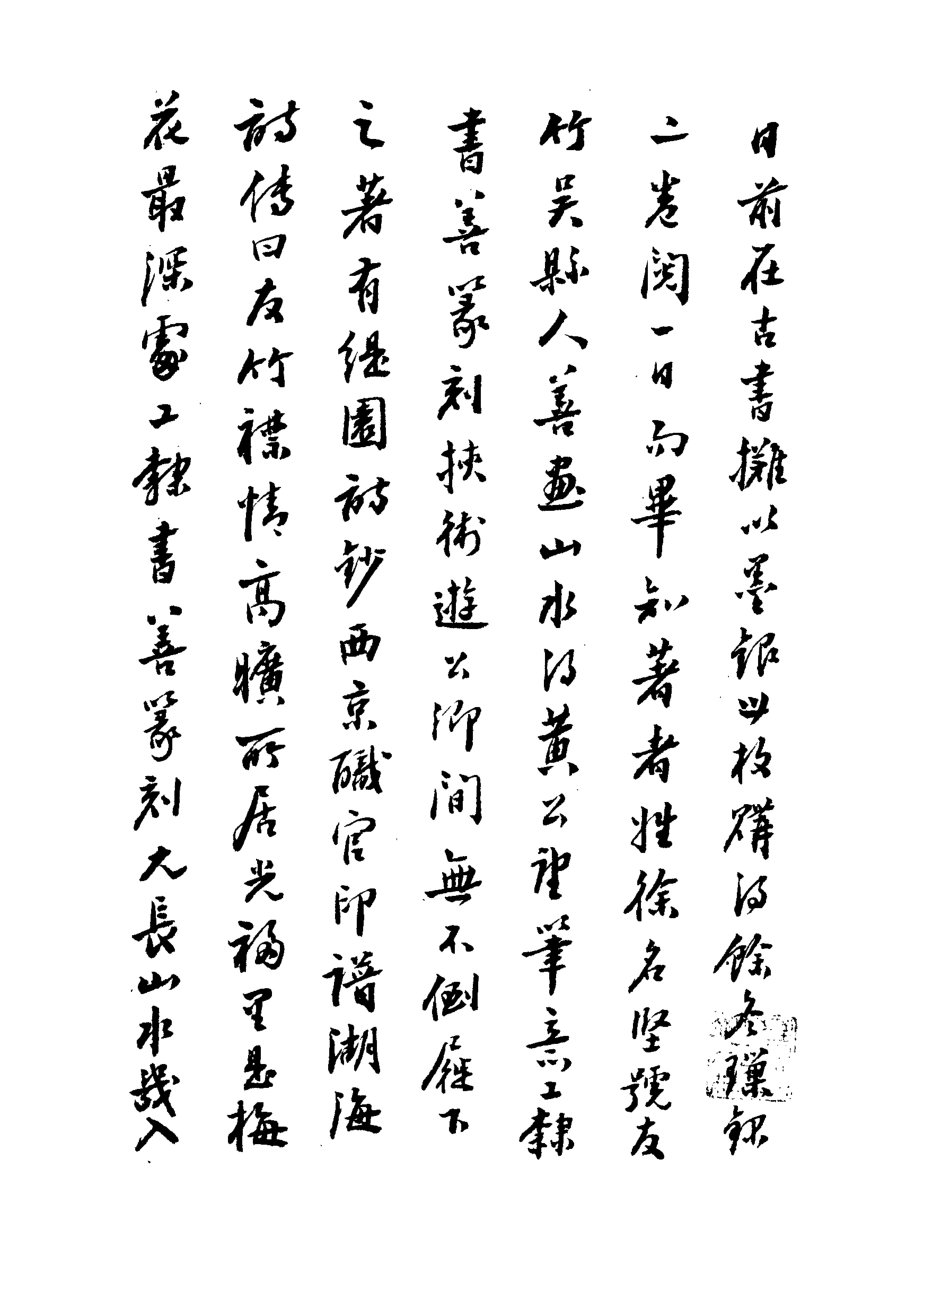 日前在古書攤以墨銀四枚購得餘冬璅錄
二卷閱一日而畢知著者姓徐名堅號友
竹吳縣人善畫山水得黃公望筆意工隸
書善篆刻挾術遊公卿間無不倒屣下
之著有緹園詩鈔西京職官印譜湖海
詩傳曰友竹襟情高曠所居光福里是梅
花最深處工隸書善篆刻尤長山水幾入